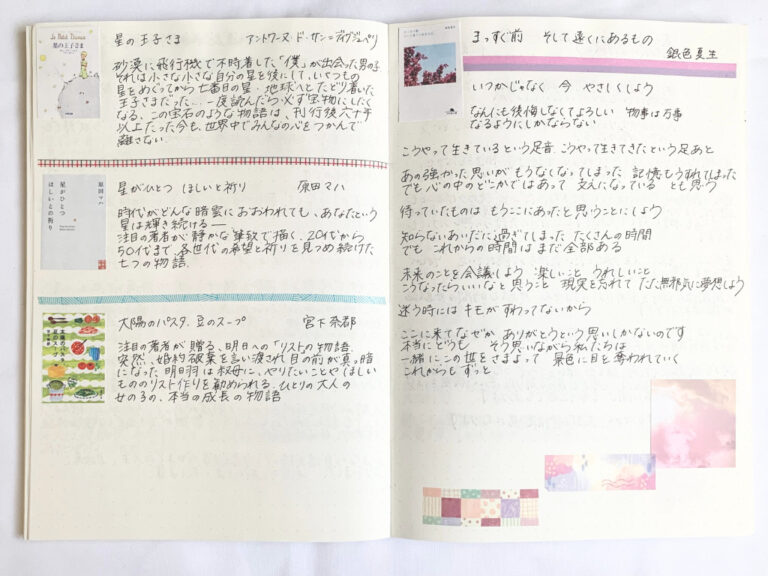 Le Petit Prince
星の王子さま
星の王子さま　アントワーヌ・ド・サン=テグジュペリ
砂漠に飛行機で不時着した「僕」が出会った男の子
それは小さな小さな自分の星を後にして、いくつもの
星をめぐってから七番目の星・地球へとたどり着いた
王子さまだった…。一度読んだら必ず宝物にしたく
なる、この宝石のような物語は、刊行後六十年
以上たった今も、世界中でみんなの心をつかんで
離さない。
原田マハ
星がひとつ
ほしいとの祈り
星がひとつ ほしいと祈り　原田マハ
時代がどんな暗雲におおわれても、あなたという
星は輝き続ける――
注目の著者が静かな筆致で描く、20代から
50代まで各世代の希望と祈りを見つめ続けた
七つの物語。
太陽のパスタ、
豆のスープ
太陽のパスタ、豆のスープ　宮下奈都
注目の著者が贈る、明日への「リスト」の物語。
突然、婚約破棄を言い渡され目の前が真っ暗
になった明日羽は叔母に、やりたいことやほしい
もののリスト作りを勧められる。ひとりの大人の
女の子の、本当の成長の物語
まっすぐ前　そして遠くにあるもの
銀色夏生
いつかじゃなく 今 やさしくしよう
なんにも後悔しなくてよろしい　物事は万事
なるようにしかならない
こうやって生きているという足音、こうやって生きてきたという足あと
あの強かった思いが もうなくなってしまった　記憶もうすれてしまった
でも 心の中のどこかではあって 支えになっている とも思う
待っていたものは もうここにあったと思うことにしよう
知らないあいだに過ぎてしまった たくさんの時間
でも これからの時間は まだ全部ある
未来のことを会議しよう 楽しいこと うれしいこと
こうなったらいいなと思うこと 現実を忘れて ただ無邪気に夢想しよう
迷う時には キモがすわってないから
ここに来て なぜか ありがとうという思いしかないのです
本当にどうも　そう思いながら私たちは
一緒にこの世をさまよって 景色に目を奪われていく
これからも ずっと